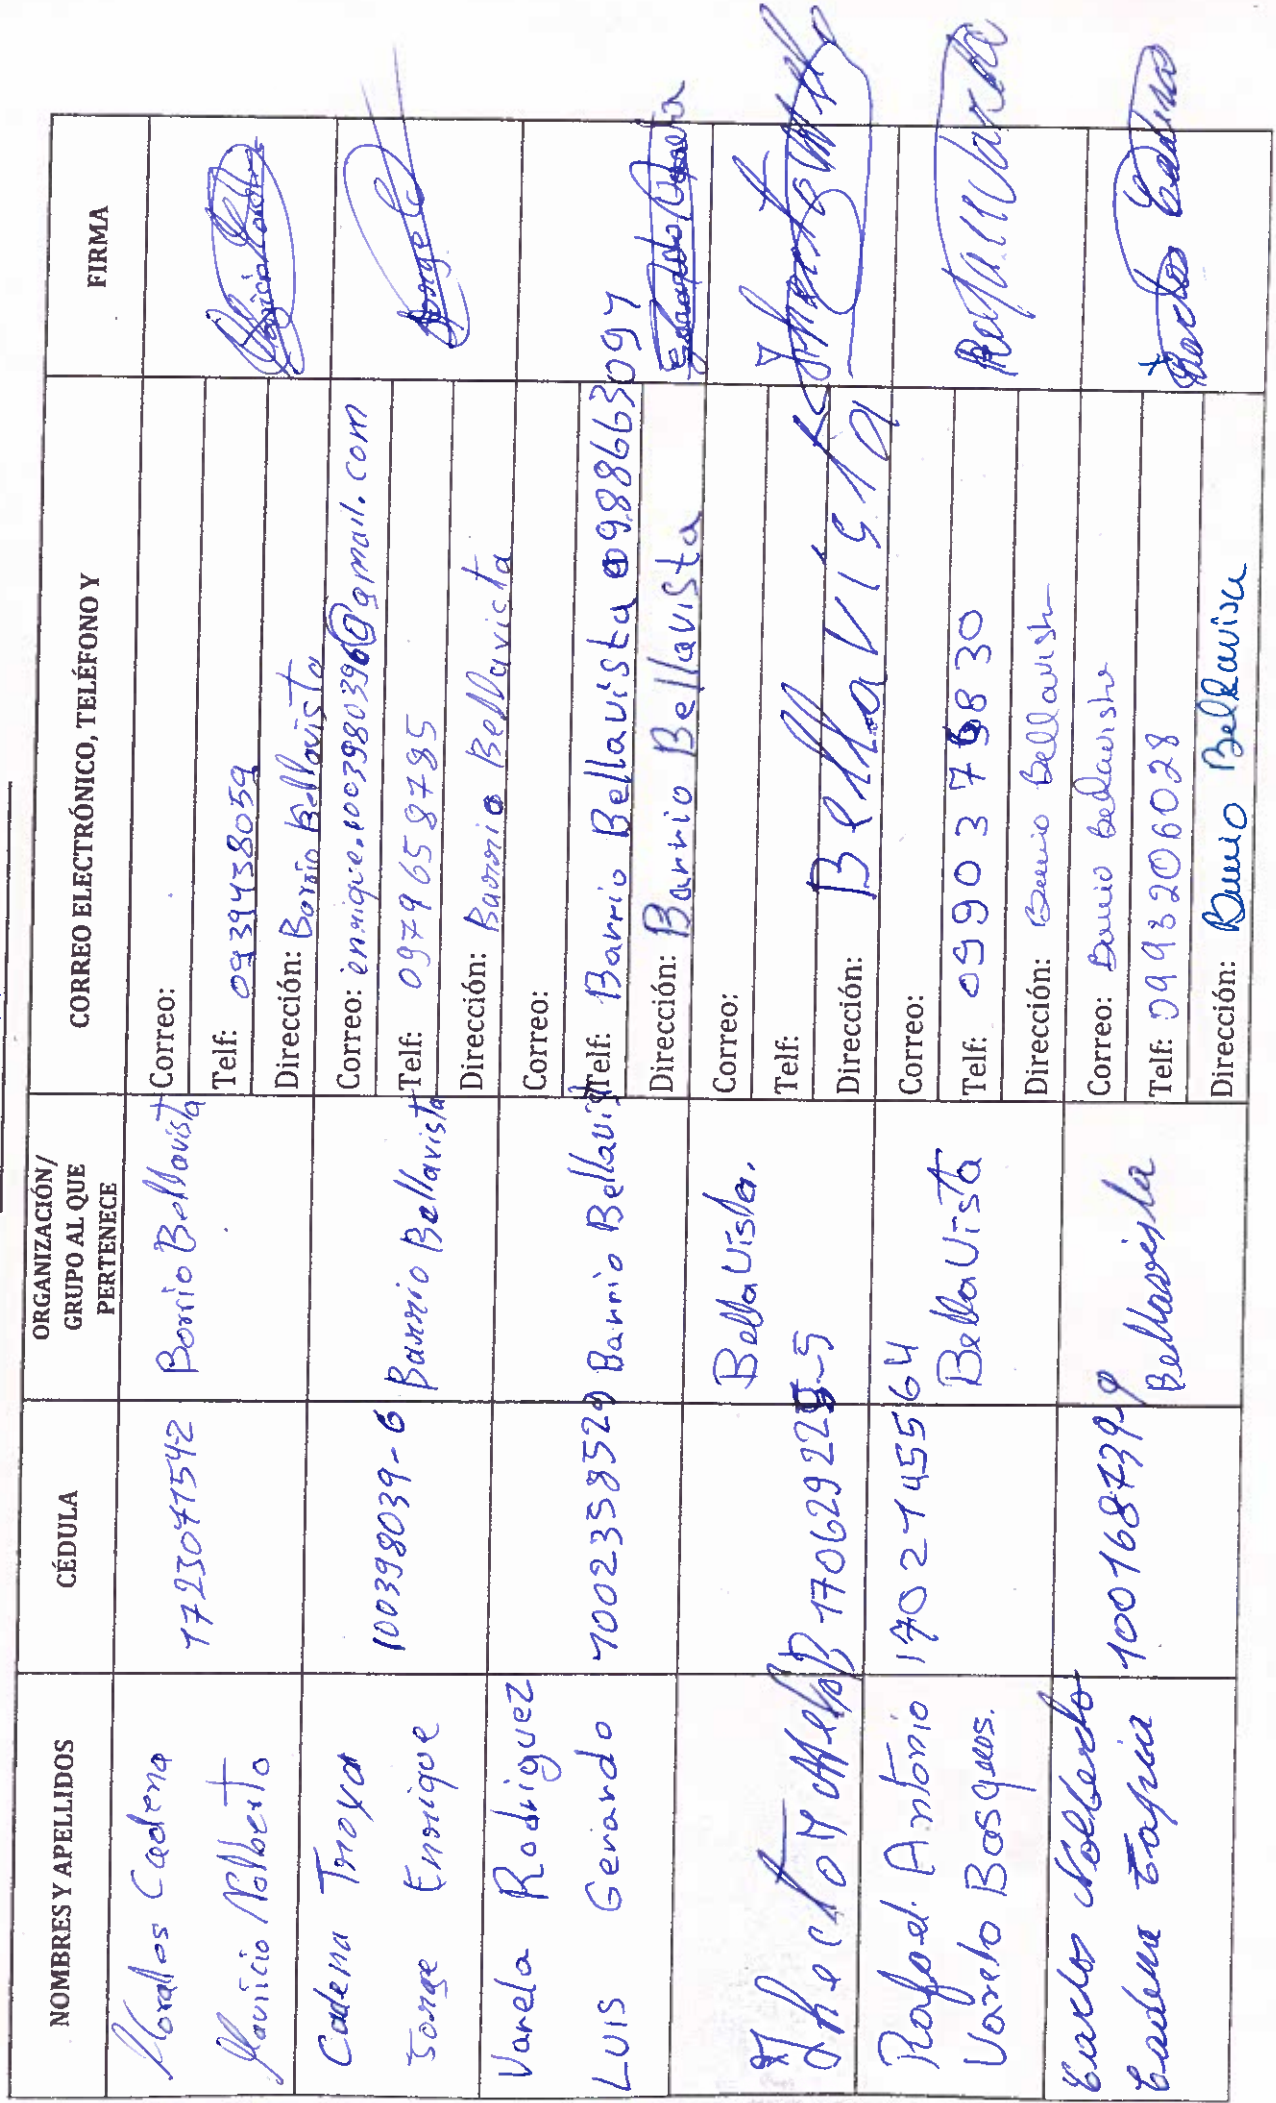 NOMBRES Y APELLIDOS
CÉDULA
ORGANIZACIÓN/
GRUPO AL QUE
PERTENECE
CORREO ELECTRÓNICO, TELÉFONO Y
FIRMA
Morales Cadena
Mauricio Nolberto
1723071542
Barrio Bellavista
Correo:
Telf: 0939438059
Dirección: Barrio Bellavista
Cadena Troya
Jorge Enrique
100398039-6
Barrio Bellavista
Correo: enrique.1003980396@gmail.com
Telf: 0979658785
Dirección: Barrio Bellavista
Jorge C
Varela Rodriguez
Luis Gerardo
1002358529
Barrio Bellavista
Correo:
Telf: Barrio Bellavista 0988663097
Dirección: Barrio Bellavista
Gerardo Varela
Bella Vista.
Correo:
Telf:
Dirección: Bella Vista
Rafael Antonio
Varela Bosques.
1702145564
Bella Vista
Correo:
Telf:
Dirección: Barrio Bellavista
Rafael Varela
Carlos Nolberto
Cadena Tapia
1001687399
Bellavista
Correo: Barrio Bellavista
Telf: 0993206028
Dirección: Barrio Bellavista
Carlos Cadena